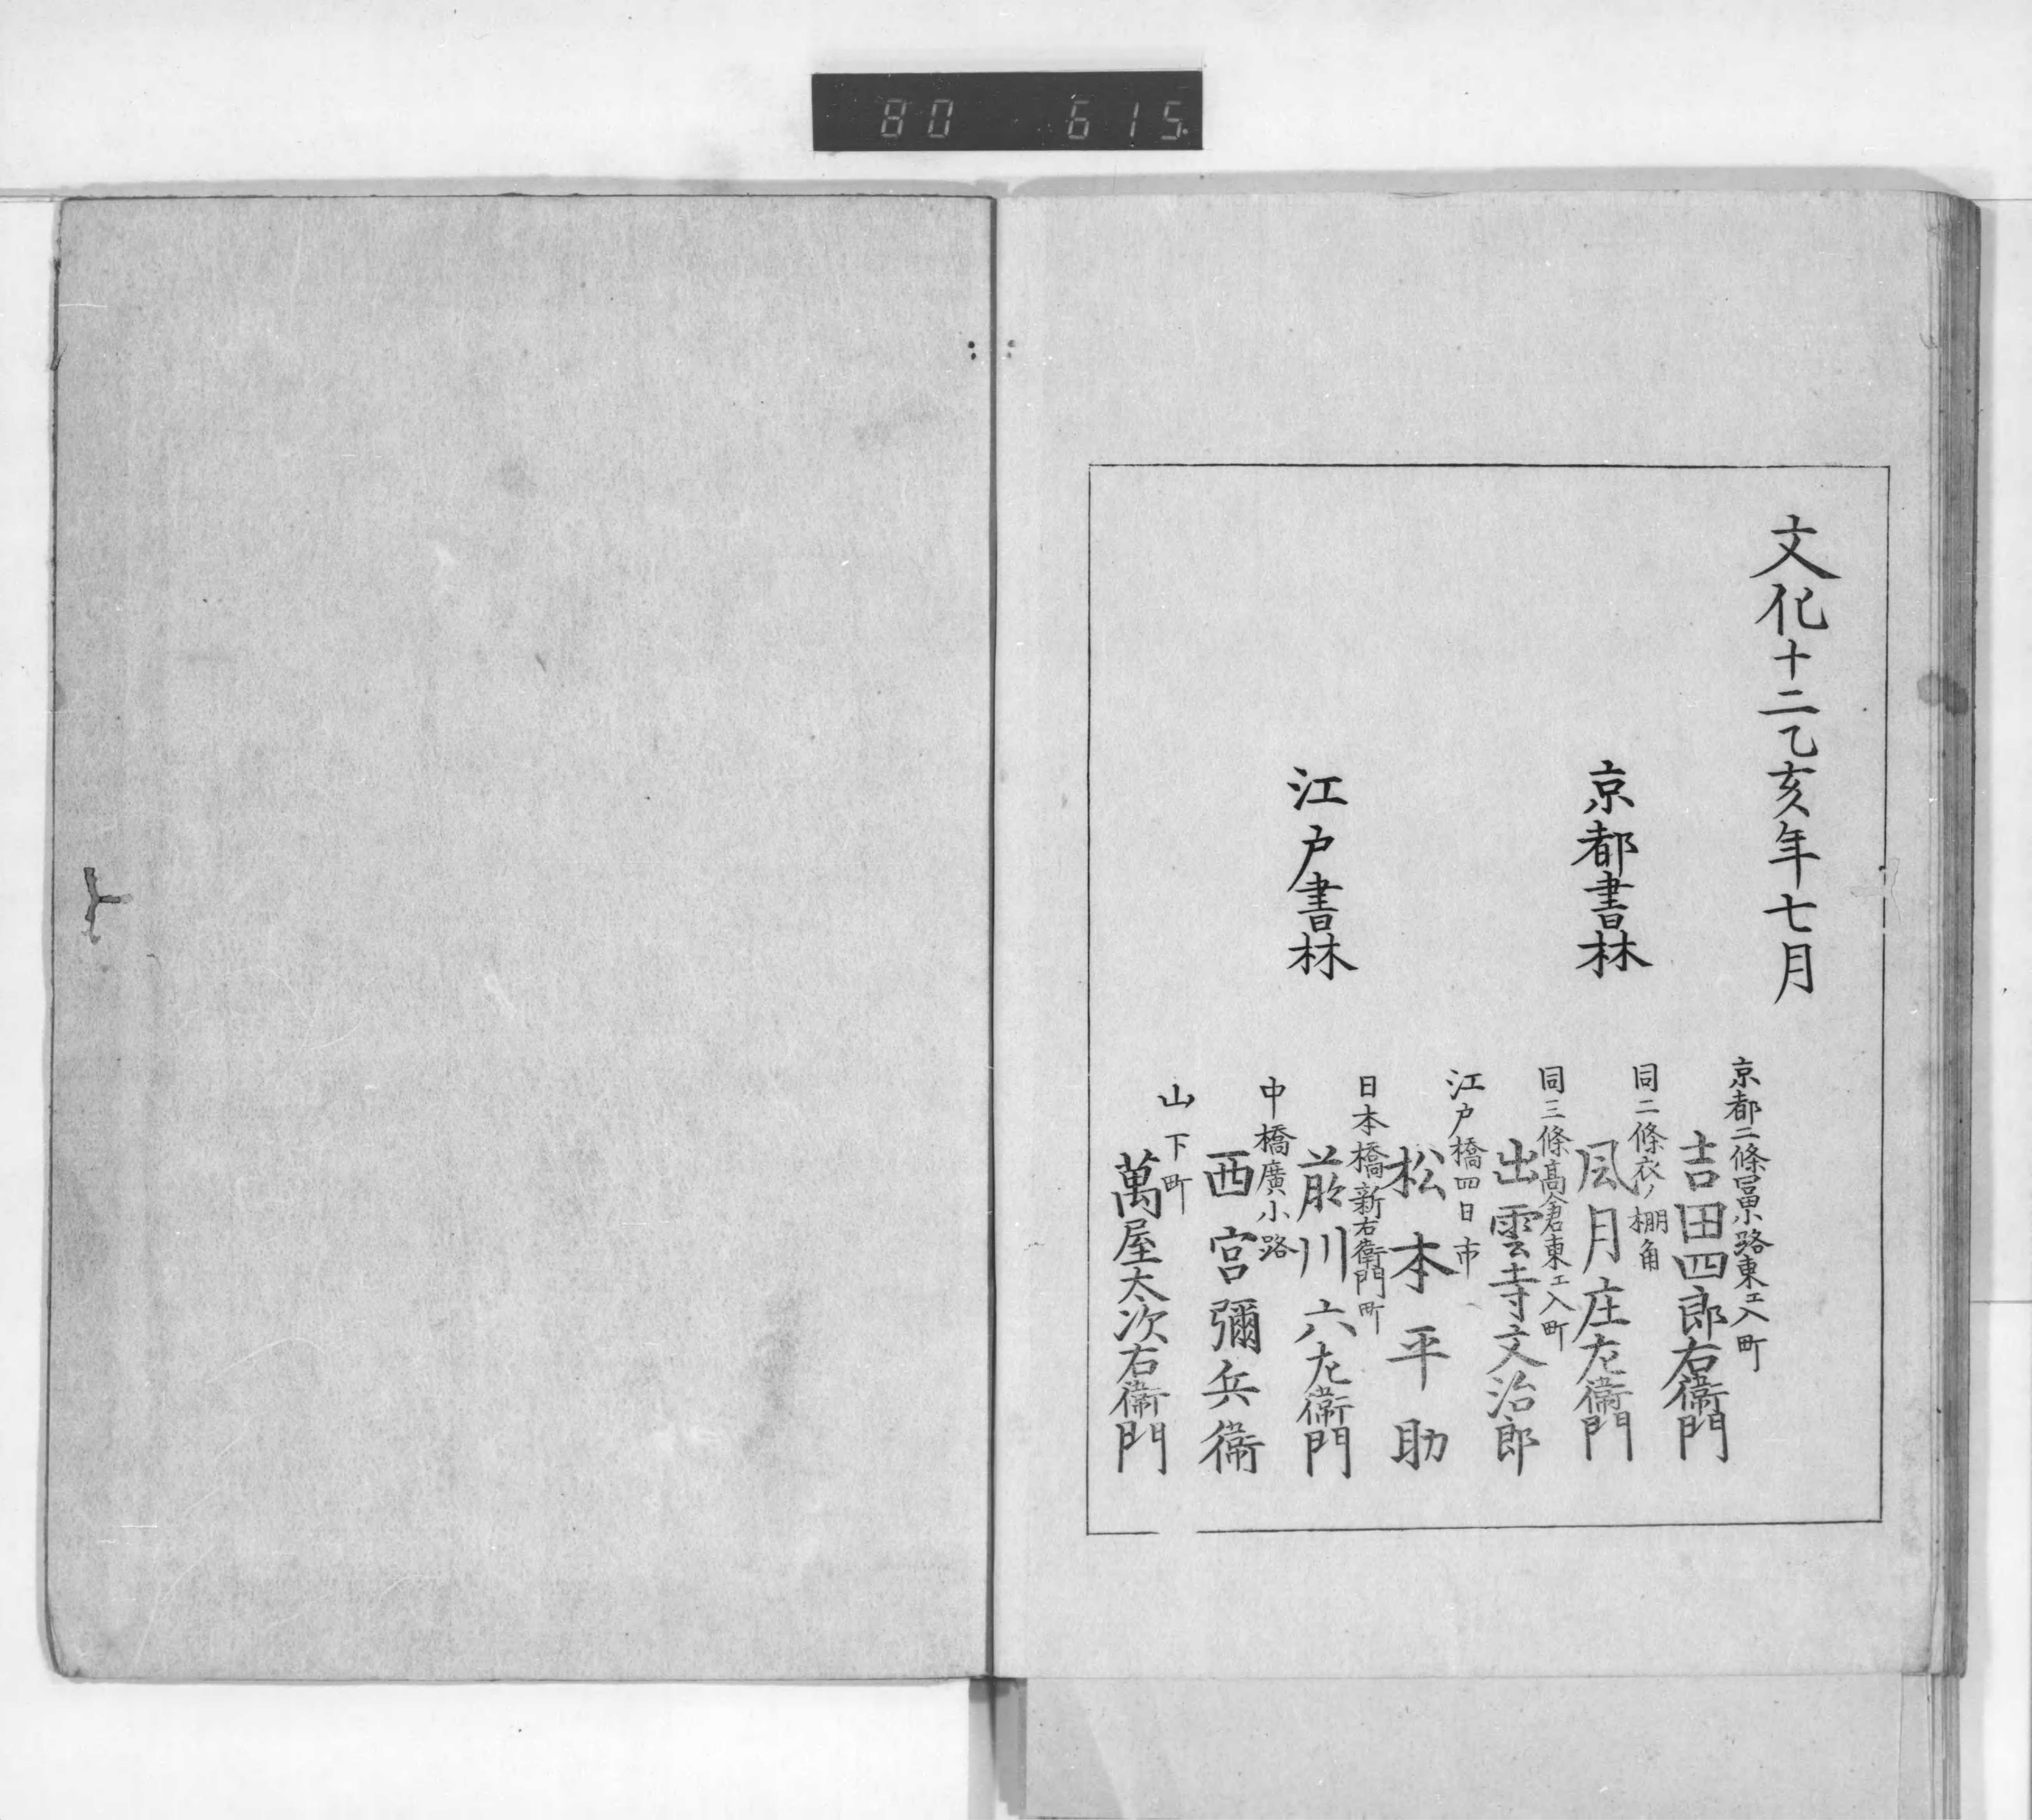 80 615
文化十二乙亥年七月
京都書林
京都二條冨小路東エ入町
吉田四郎右衞門
同二條衣ノ棚角
风月庄左衞門
同三條高倉東エ入町
出雲寺文治郎
江戸書林
江戸橋四日市
松本平助
日本橋新右衞門町
前川六左衞門
中橋廣小路
西宮彌兵衞
山下町
萬屋太次右衞門